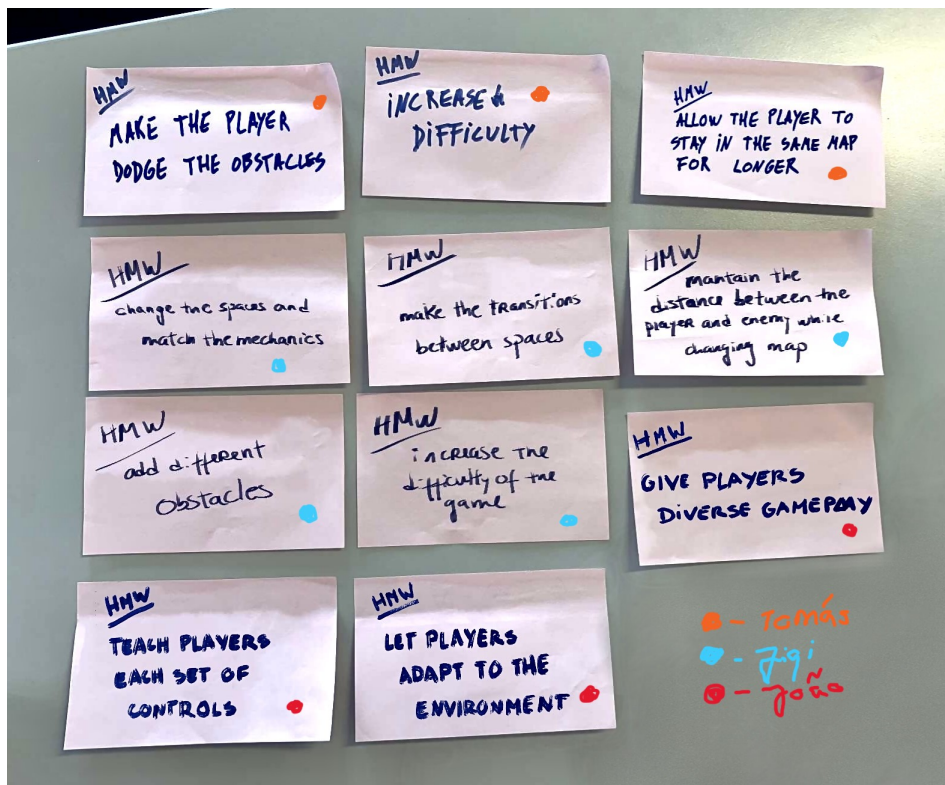 HMW
MAKE THE PLAYER
DODGE THE OBSTACLES
HMW
INCREASE
DIFFICULTY
HMW
ALLOW THE PLAYER TO
STAY IN THE SAME MAP
FOR LONGER
HMW
change the spaces and
match the mechanics
HMW
make the transitions
between spaces
HMW
mantain the
distance between the
player and enemy while
changing map
HMW
add different
obstacles
HMW
increase the
difficulty of the
game
HMW
GIVE PLAYERS
DIVERSE GAMEPLAY
HMW
TEACH PLAYERS
EACH SET OF
CONTROLS
HMW
LET PLAYERS
ADAPT TO THE
ENVIRONMENT
- Tomás
- Jigi
- João